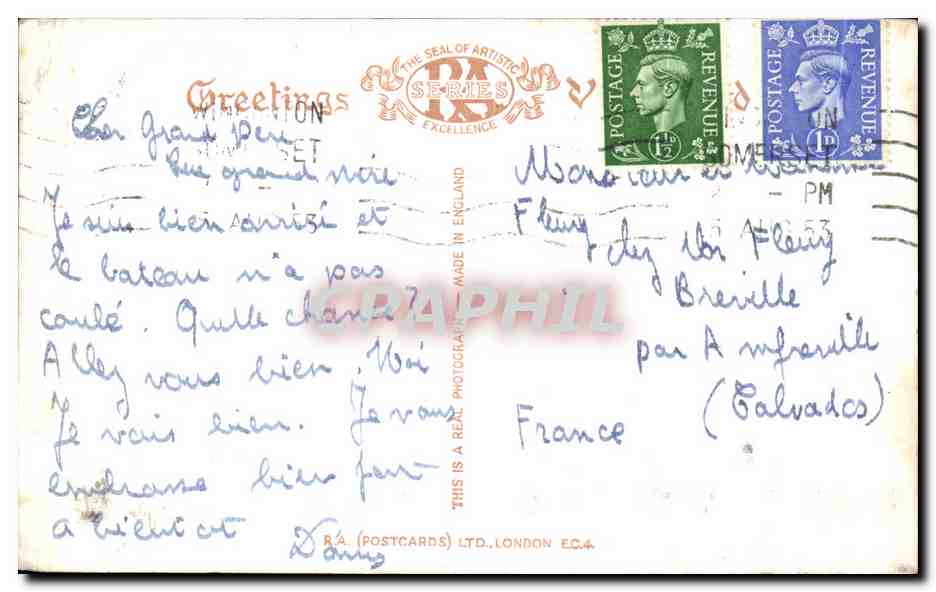 THE SEAL OF ARTISTIC
RA
SERIES
EXCELLENCE
Greetings
POSTAGE REVENUE
1½D
POSTAGE REVENUE
1D
TON
SET
ON
SOMERSET
- PM
AUG 53
Cher grand père
grand mère
Je suis bien arrivé et
le bateau n'a pas
coulé. Quelle chance?
Allez vous bien. Moi
Je vais bien. Je vous
embrasse bien fort
a bientot
Monsieur et Madame
Fleury
chez Mr Fleury
Breville
par Amfreville
(Calvados)
France
THIS IS A REAL PHOTOGRAPH MADE IN ENGLAND
CPAPHIL
R.A. (POSTCARDS) LTD., LONDON E.C.4.